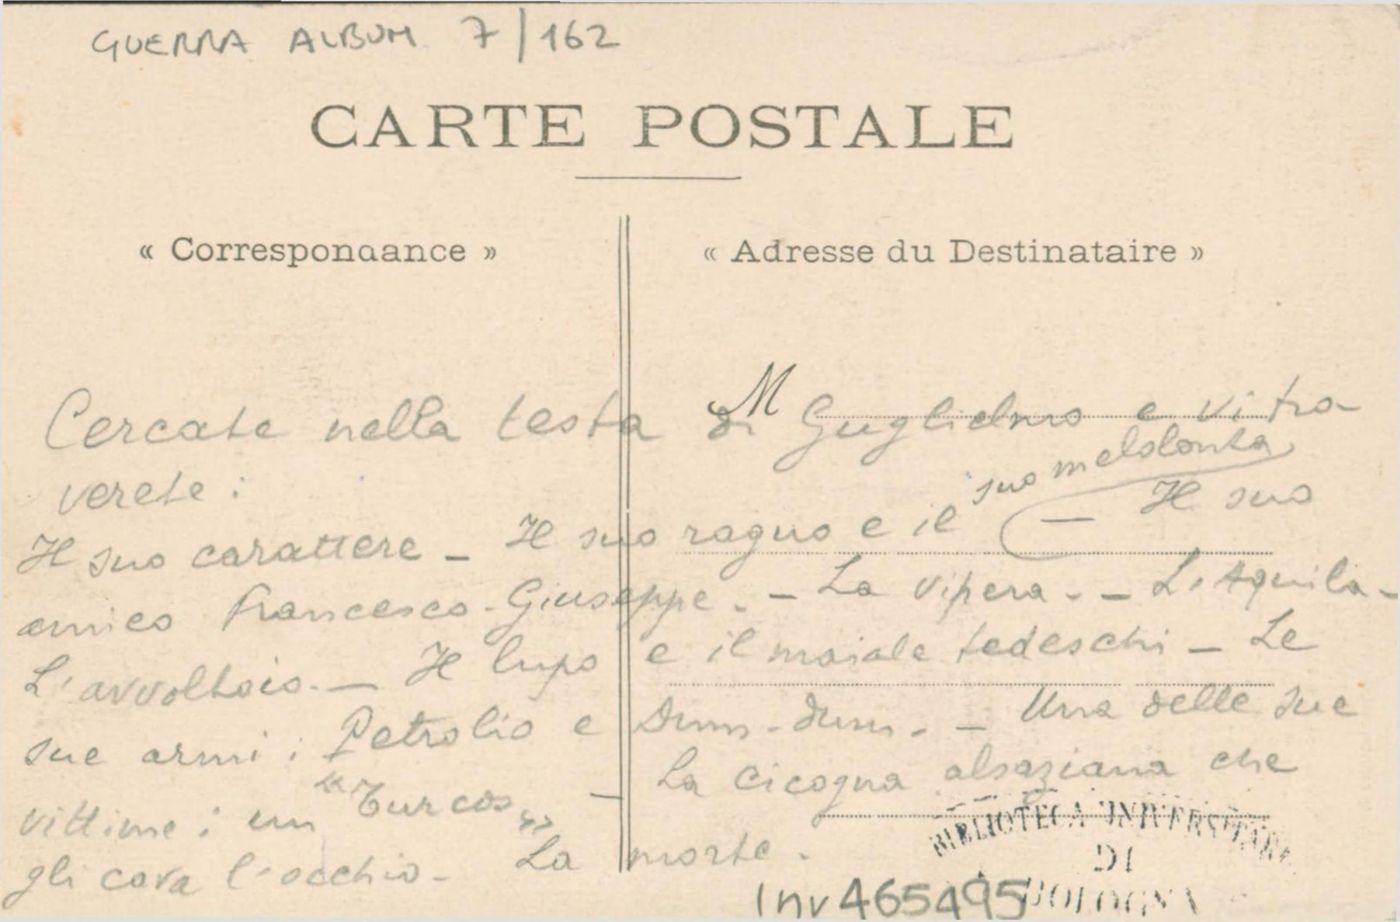 GUERRA ALBUM 7/162
CARTE POSTALE
« Correspondance »
« Adresse du Destinataire »
M
Cercate nella testa di Guglielmo e vi tro-
verete:
suo melolonta
Il suo carattere - Il suo ragno e il — Il suo
amico Francesco-Giuseppe. - La vipera. - L'Aquila -
L'avvoltoio. - Il lupo e il maiale tedeschi - Le
sue armi: Petrolio e Dum-dum. - Una delle sue
vittime: un "Turcos" - La cicogna alsaziana che
gli cava l'occhio - La morte.
BIBLIOTECA UNIVERSITARIA
DI
BOLOGNA
Inv 465495